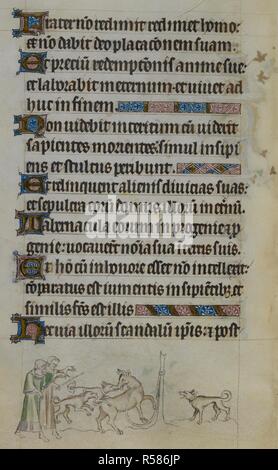 Frater nō redimit redimet homo:
et non dabit deo placacōnem suam.
Et preciū redempcōnis anime sue:
et laborabit in eternum et vivet ad
huc in finem.
Non videbit interitum cū viderit
sapientes morientes: simul insipi
ens et stultus peribunt.
Et relinquent alienis divicias suas:
et sepulcra
Tabernacula eorum in progenie
genie: vocaverūt noīa sua in terris suis.
Et hō cū in honore esset nō intellexit:
comparatus est iumentis insipientibus et
similis fcūs est illis
Hec via illorum scandalū ipīs: et post
alamy
Image ID: R586JP
www.alamy.com